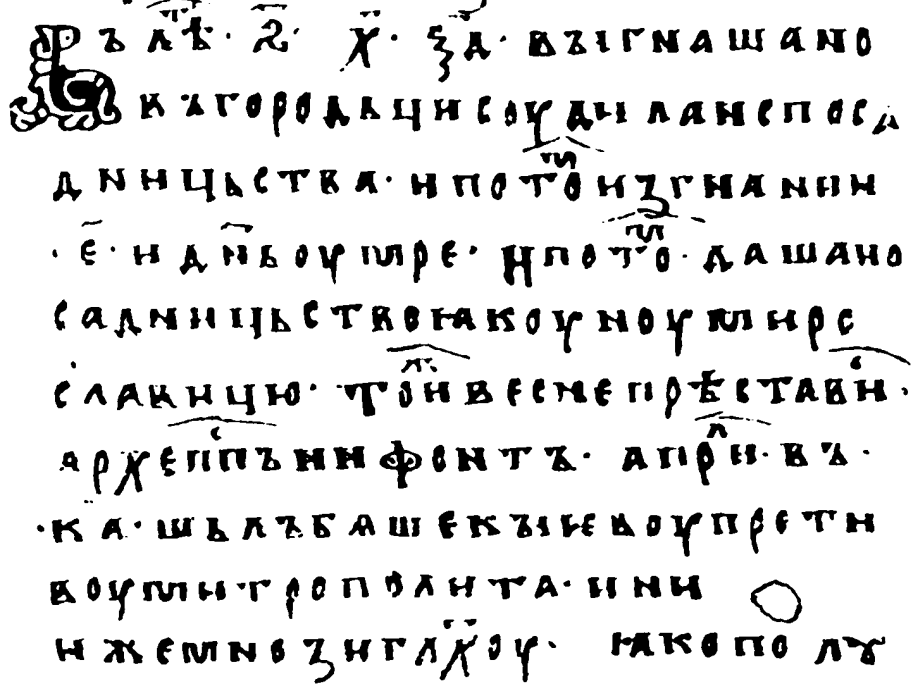 Въ лѣт҃· ҂ѕ҃· х҃· ѯ҃д· въıгнаша но
въгородьци соудила ис поса
дницьства· и по то̑м изгнании
·е҃· и дн҃ь оумре· и по то̑м· даша по
садницьство ꙗкоуноу миро
славицю· то̑ж и весне прѣстави̑с·
архепс҃пъ нифонтъ· апри̑л· въ·
·ка· шьлъ бѧше къıевоу прети
воу митрополита· ини
иже мнози гл҃ахоу· ꙗко полꙋ